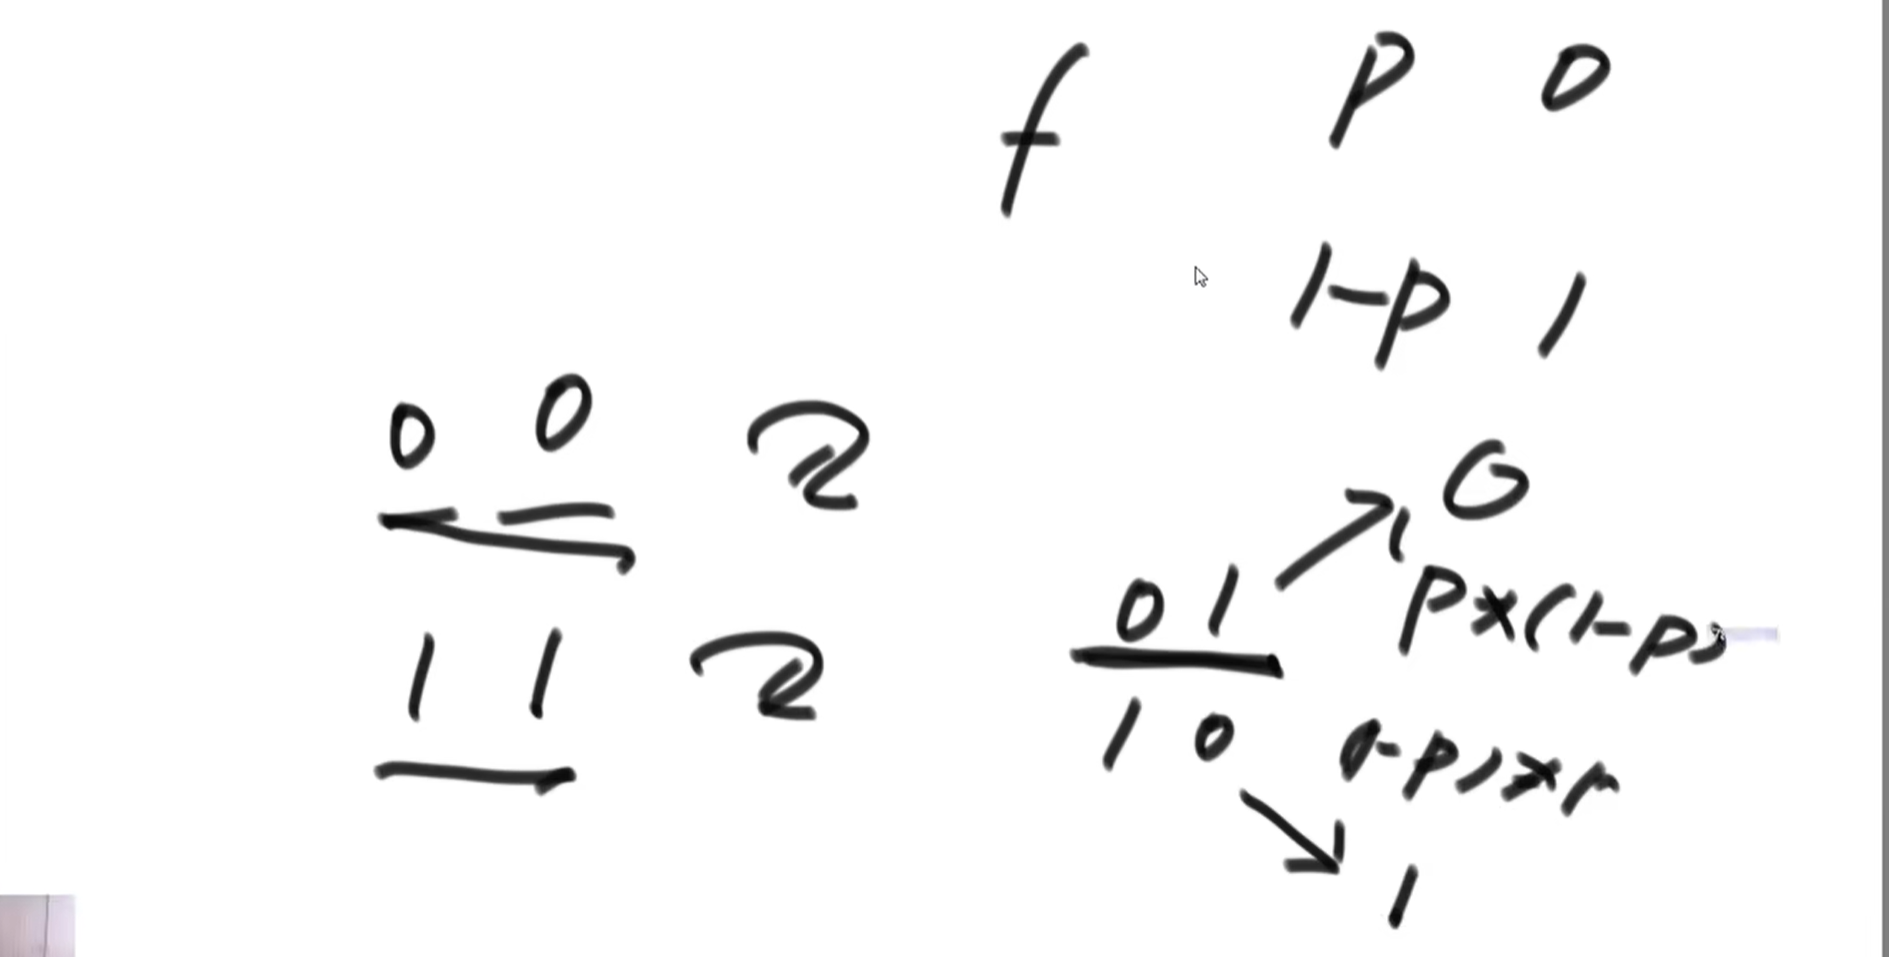 f p 0
1-p 1
0 0 2
1 1 2
0 1 0
p×(1-p)
1 0 (1-p)×p
1